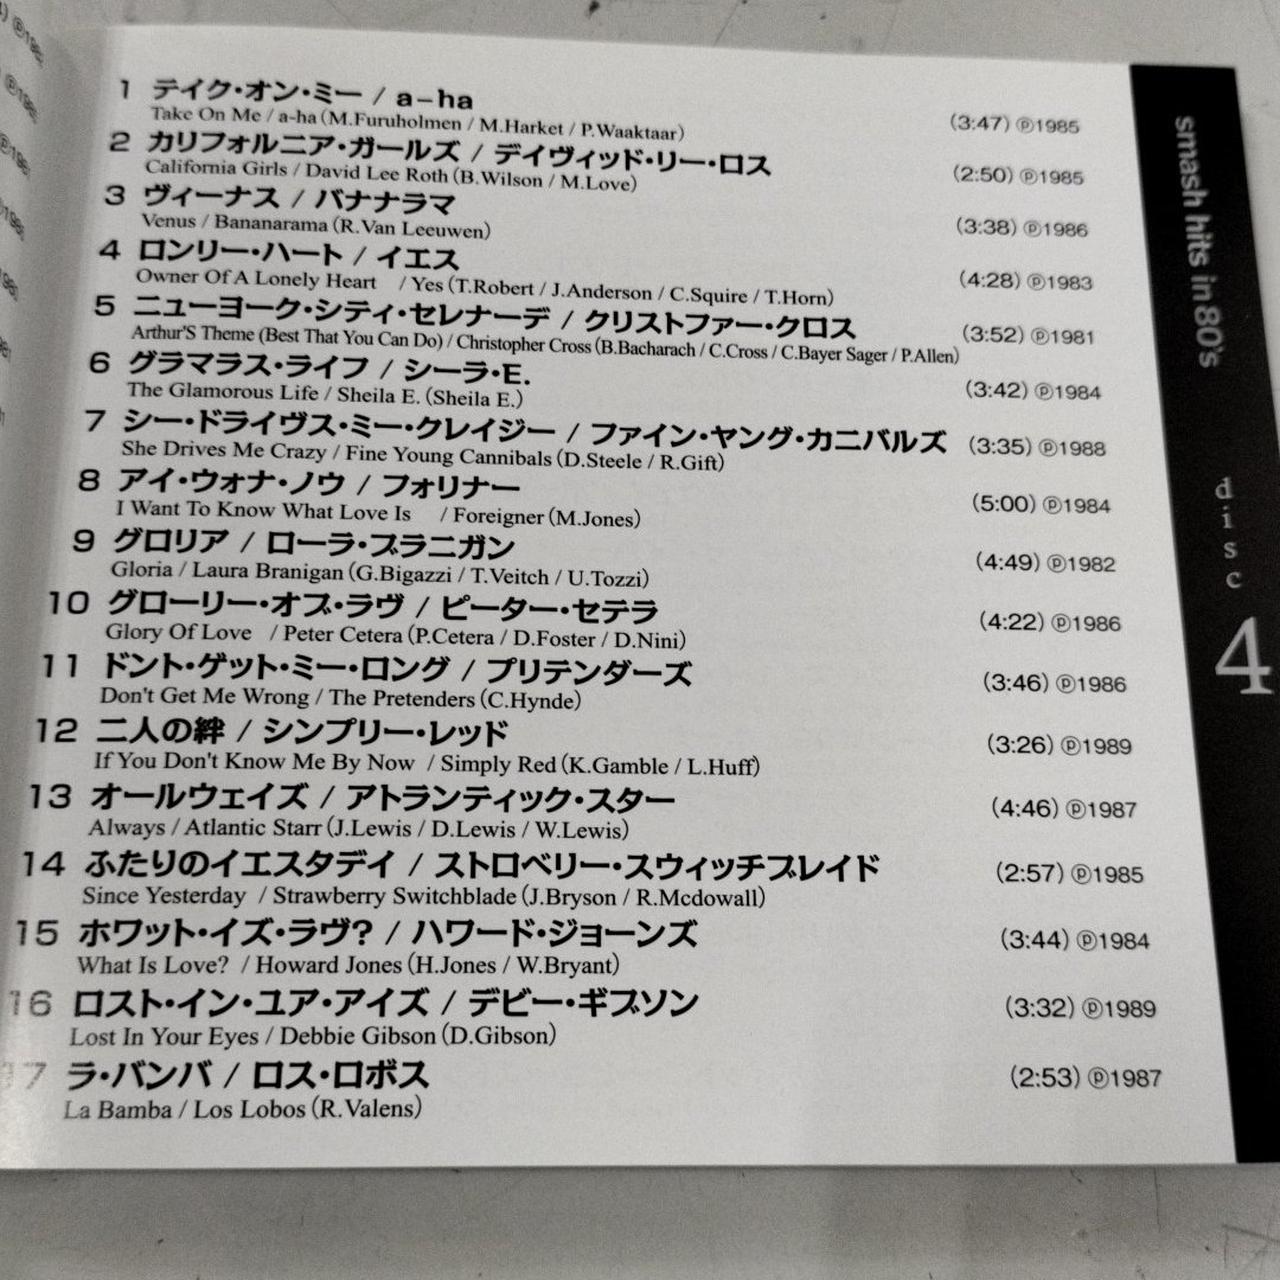 1 テイク・オン・ミー / a-ha
Take On Me / a-ha (M.Furuholmen / M.Harket / P.Waaktaar) (3:47) ℗1985
2 カリフォルニア・ガールズ / デイヴィッド・リー・ロス
California Girls / David Lee Roth (B.Wilson / M.Love) (2:50) ℗1985
3 ヴィーナス / バナナラマ
Venus / Bananarama (R.Van Leeuwen) (3:38) ℗1986
4 ロンリー・ハート / イエス
Owner Of A Lonely Heart / Yes (T.Robert / J.Anderson / C.Squire / T.Horn) (4:28) ℗1983
5 ニューヨーク・シティ・セレナーデ / クリストファー・クロス
Arthur'S Theme (Best That You Can Do) / Christopher Cross (B.Bacharach / C.Cross / C.Bayer Sager / P.Allen) (3:52) ℗1981
6 グラマラス・ライフ / シーラ・E.
The Glamorous Life / Sheila E. (Sheila E.) (3:42) ℗1984
7 シー・ドライヴス・ミー・クレイジー / ファイン・ヤング・カニバルズ
She Drives Me Crazy / Fine Young Cannibals (D.Steele / R.Gift) (3:35) ℗1988
8 アイ・ウォナ・ノウ / フォリナー
I Want To Know What Love Is / Foreigner (M.Jones) (5:00) ℗1984
9 グロリア / ローラ・ブラニガン
Gloria / Laura Branigan (G.Bigazzi / T.Veitch / U.Tozzi) (4:49) ℗1982
10 グローリー・オブ・ラヴ / ピーター・セテラ
Glory Of Love / Peter Cetera (P.Cetera / D.Foster / D.Nini) (4:22) ℗1986
11 ドント・ゲット・ミー・ロング / プリテンダーズ
Don't Get Me Wrong / The Pretenders (C.Hynde) (3:46) ℗1986
12 二人の絆 / シンプリー・レッド
If You Don't Know Me By Now / Simply Red (K.Gamble / L.Huff) (3:26) ℗1989
13 オールウェイズ / アトランティック・スター
Always / Atlantic Starr (J.Lewis / D.Lewis / W.Lewis) (4:46) ℗1987
14 ふたりのイエスタデイ / ストロベリー・スウィッチブレイド
Since Yesterday / Strawberry Switchblade (J.Bryson / R.Mcdowall) (2:57) ℗1985
15 ホワット・イズ・ラヴ? / ハワード・ジョーンズ
What Is Love? / Howard Jones (H.Jones / W.Bryant) (3:44) ℗1984
16 ロスト・イン・ユア・アイズ / デビー・ギブソン
Lost In Your Eyes / Debbie Gibson (D.Gibson) (3:32) ℗1989
17 ラ・バンバ / ロス・ロボス
La Bamba / Los Lobos (R.Valens) (2:53) ℗1987
smash hits in 80's
disc 4